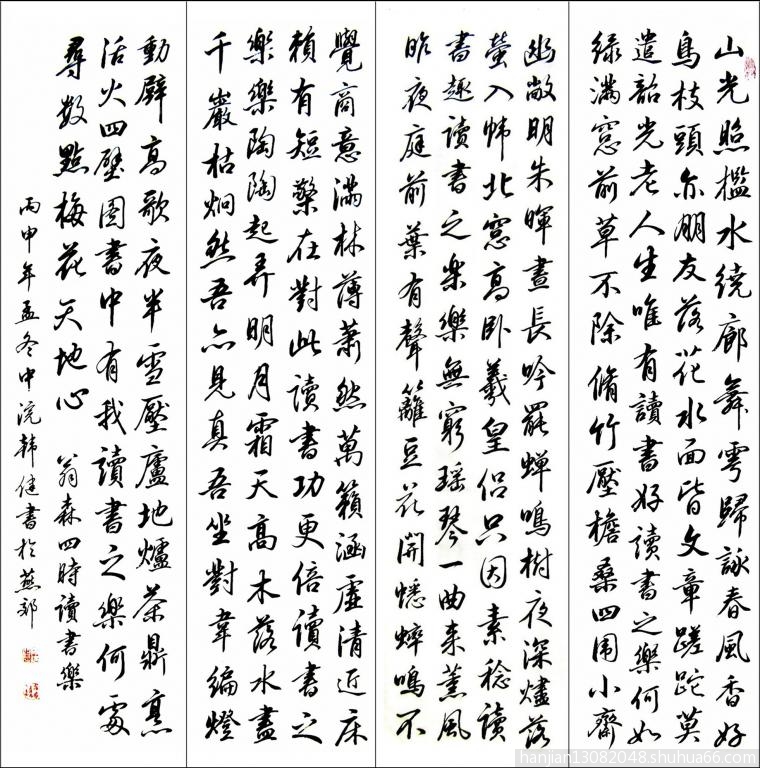 山光照檻水繞廊舞雩歸詠春風香好
鳥枝頭亦朋友落花水面皆文章蹉跎莫
遣韶光老人生唯有讀書好讀書之樂何如
緑滿窓前草不除脩竹壓檐桑四围小齋
幽敞明朱暉晝長吟罷蟬鳴樹夜深燼落
螢入幃北窓高卧羲皇侣只因素稔讀
書趣讀書之樂樂無窮瑶琴一曲来薰風
昨夜庭前葉有聲籬豆花開蟋蟀鳴不
覺商意滿林薄蕭然萬籟涵虚清近床
賴有短檠在對此讀書功更倍讀書之
樂樂陶陶起弄明月霜天高木落水盡
千巖枯炯然吾亦見真吾坐對韋編燈
動壁高歌夜半雪壓廬地爐茶鼎烹
活火四壁图書中有我讀書之樂何處
尋数點梅花天地心 翁森四時讀書樂
丙申年孟冬中浣韩健書於燕郊
hanjian13082048.shuhua66.com